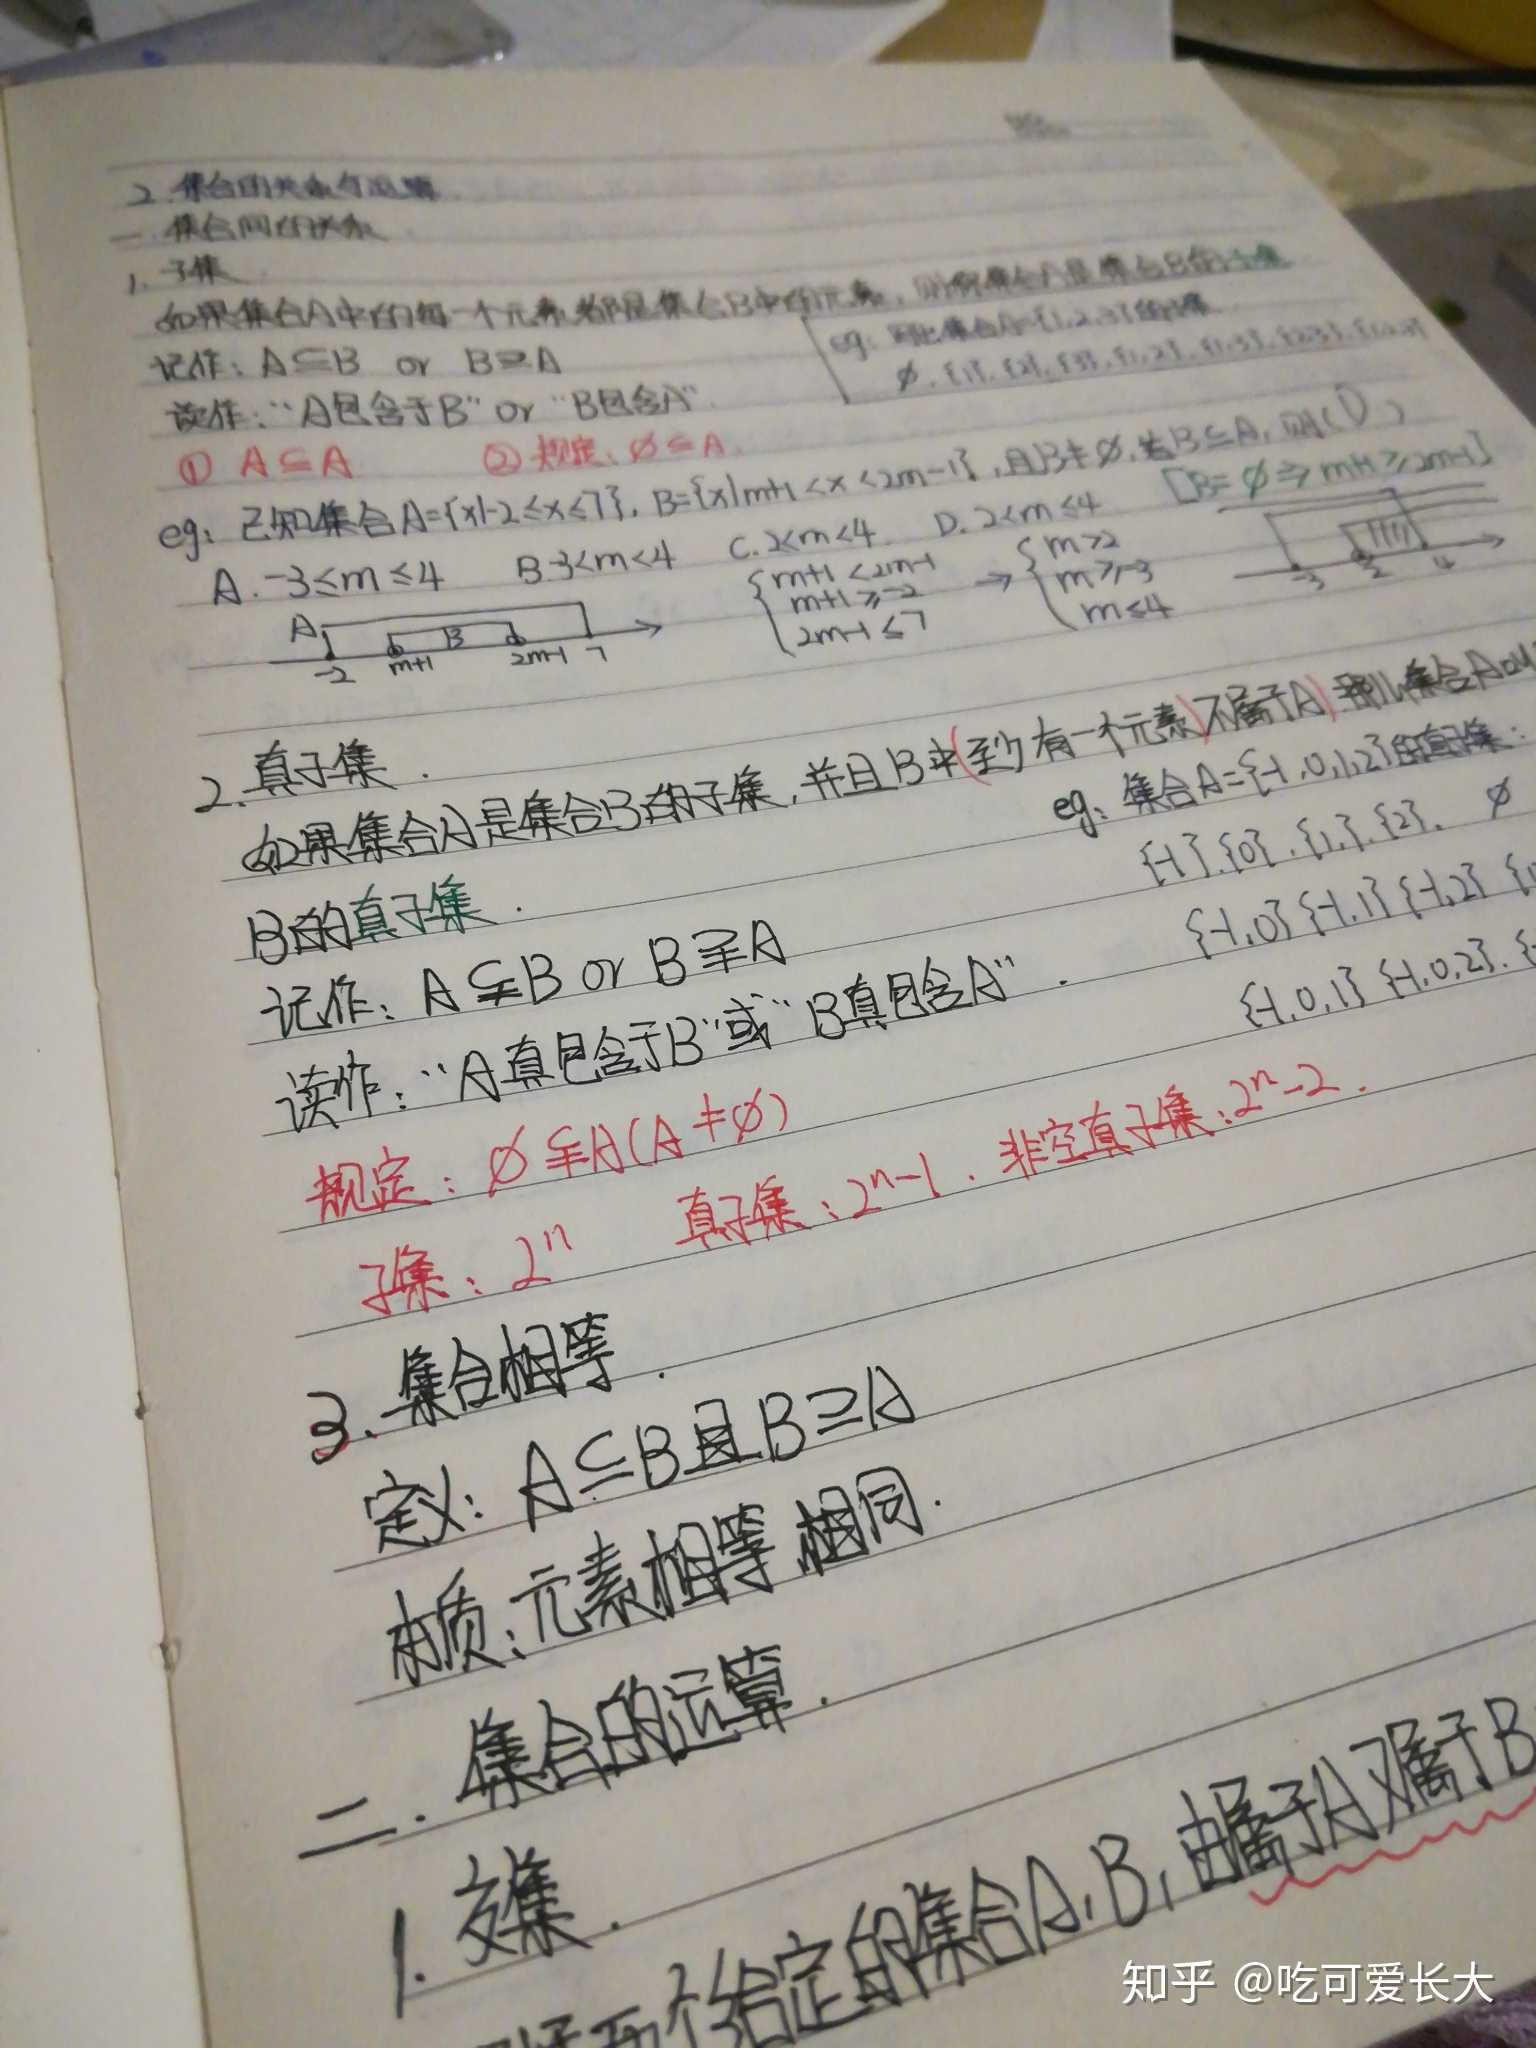 2. 集合的关系与运算
一. 集合间的关系
1. 子集
如果集合A中的每一个元素都是集合B中的元素, 则称集合A是集合B的子集
记作: A⊆B or B⊇A
eg: 写出集合A={1,2,3}的子集
∅, {1}, {2}, {3}, {1,2}, {1,3}, {2,3}, {1,2,3}
读作: "A包含于B" or "B包含A".
① A⊆A ② 规定: ∅⊆A.
eg: 已知集合A={x|-2≤x≤7}, B={x|m+1<x<2m-1}, 且B≠∅, 若B⊆A, 则(D)
[B=∅⇒m+1≥2m-1]
A. -3≤m≤4 B.-3<m<4 C. 2<m<4 D. 2<m≤4
{m+1<2m-1 → {m>2
m+1≥-2 m≥-3
2m-1≤7 m≤4
A B
-2 m+1 2m-1 7
-3 2 4
2. 真子集.
如果集合A是集合B的子集, 并且B中(至少有一个元素)不属于A) 那么集合A
B的真子集.
eg: 集合A={-1,0,1,2}的真子集:
{-1}.{0}.{1}.{2}. ∅
{-1,0} {-1,1} {-1,2}
{-1,0,1} {-1,0,2}.
记作: A⫋B or B⫌A
读作: "A真包含于B"或"B真包含A".
规定: ∅⫋A(A≠∅)
子集: 2ⁿ 真子集: 2ⁿ-1. 非空真子集: 2ⁿ-2.
3. 集合相等.
定义: A⊆B且B⊇A
本质: 元素相等 相同.
二. 集合的运算.
1. 交集.
两个给定的集合A, B, 由属于A又属于B
知乎 @吃可爱长大